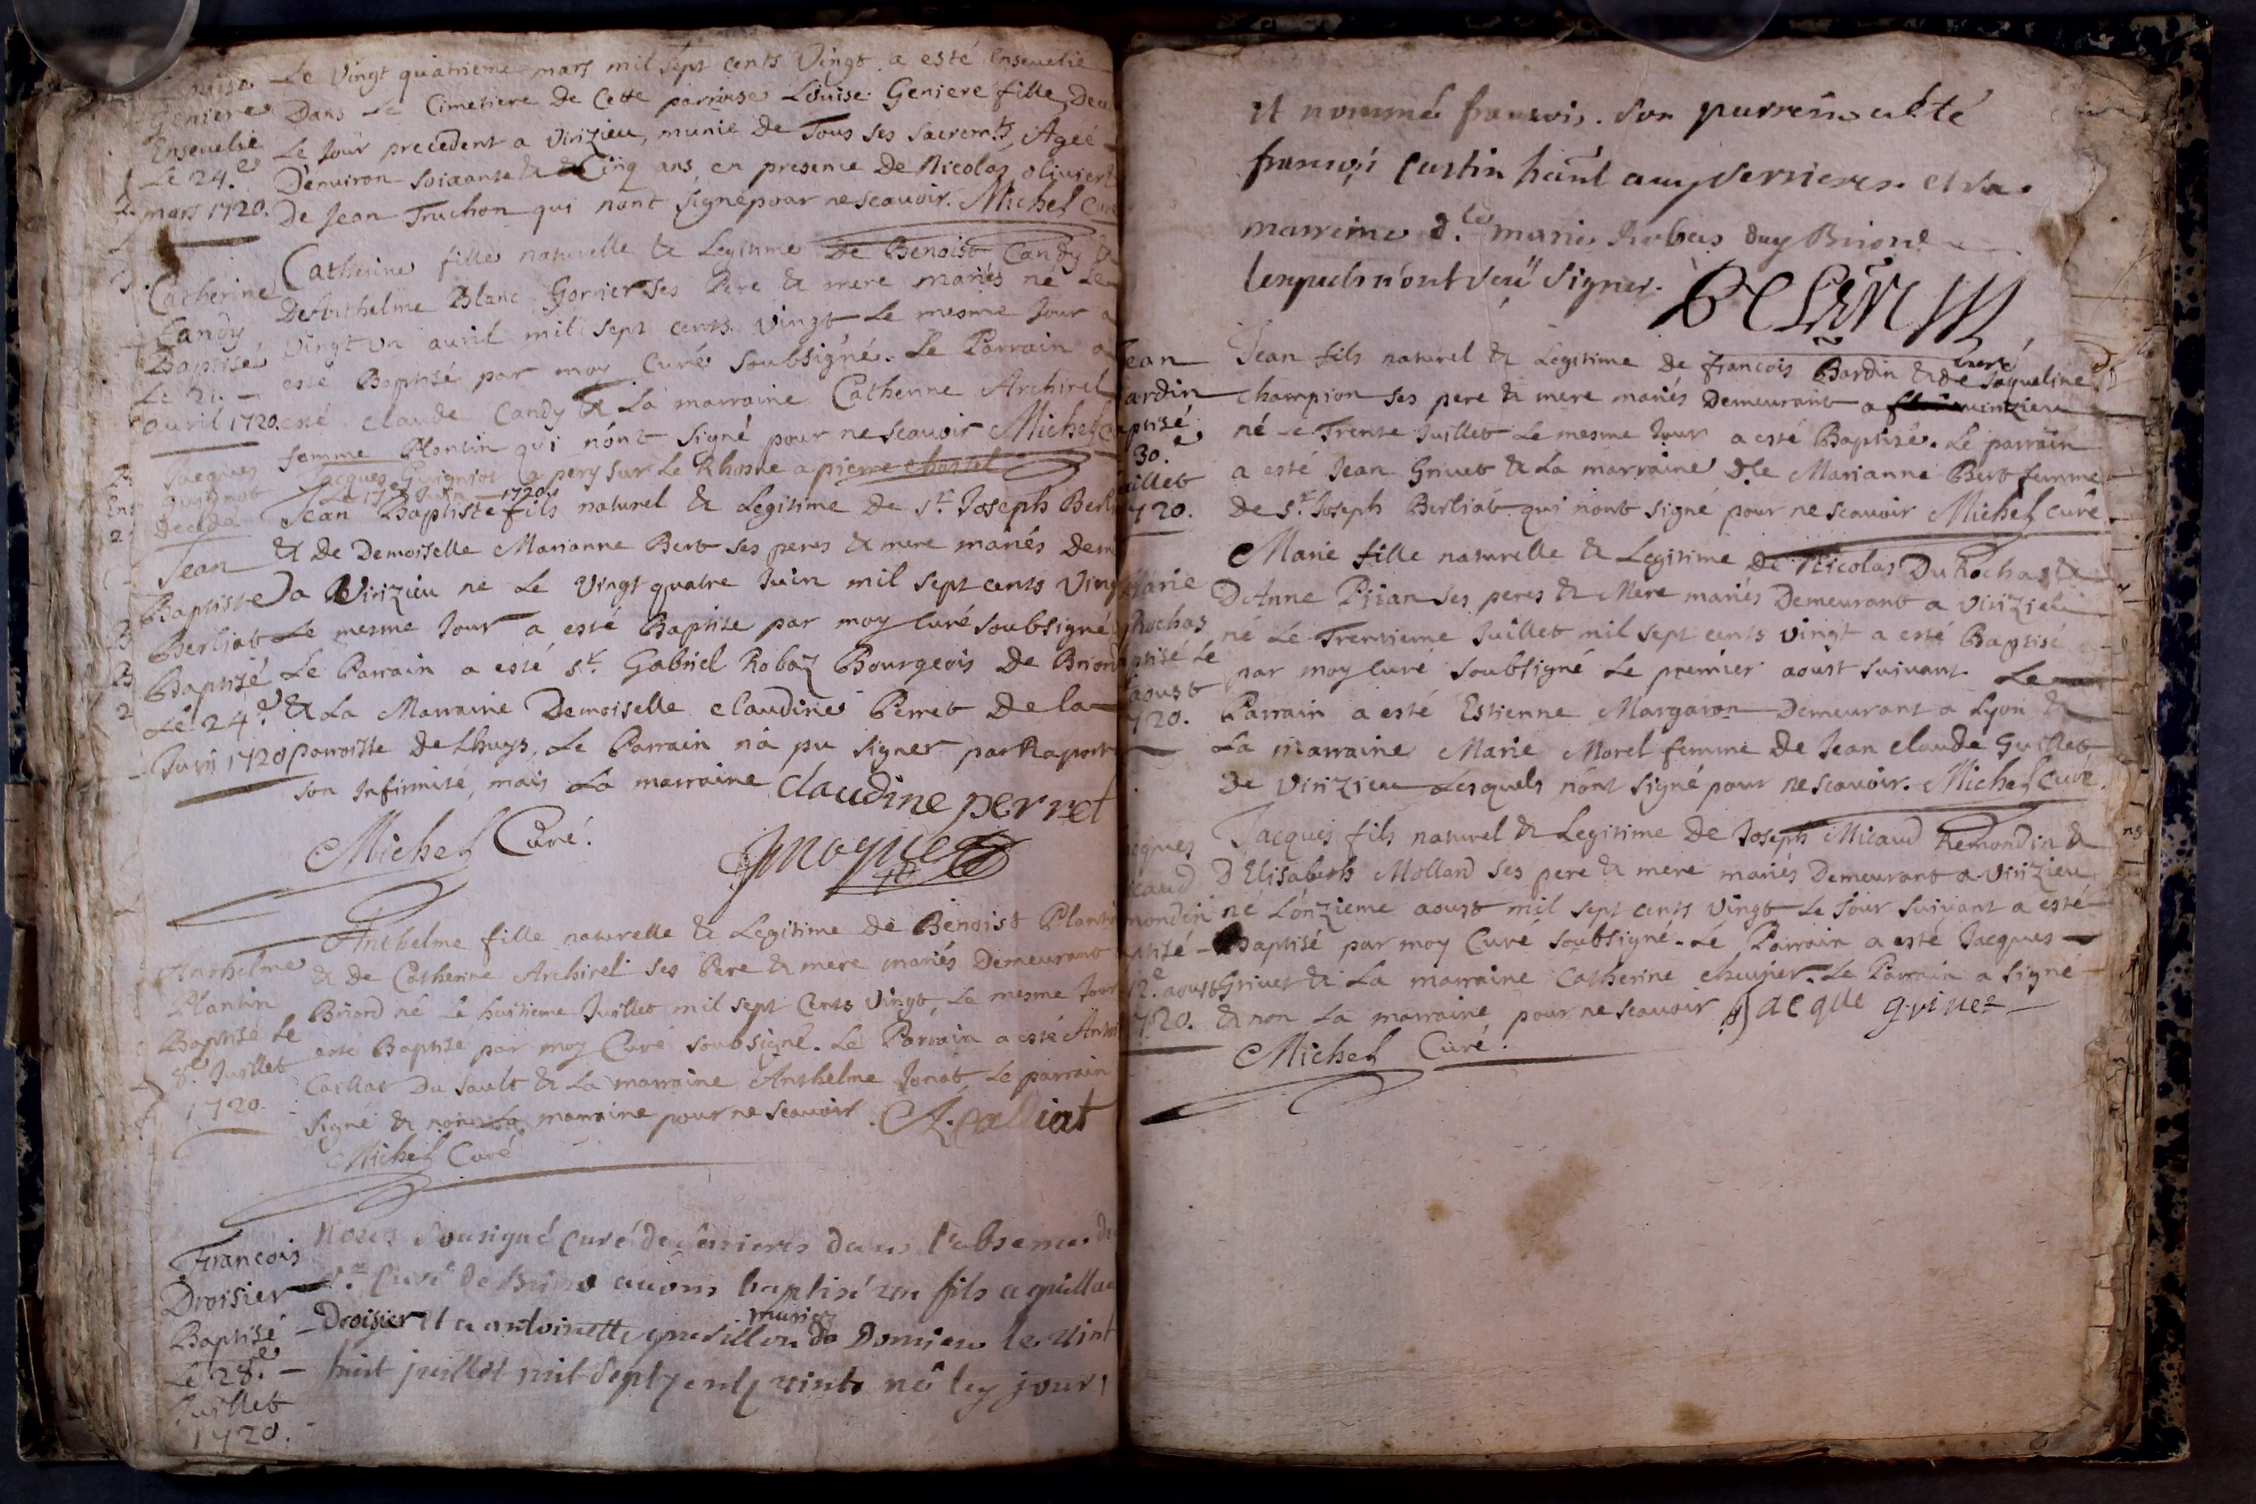 Geniere
Ensevelie
Le 24.e
mars 1720.
Le Vingt quatrieme mars mil sept cents Vingt a esté Ensevelie
Dans Le Cimetiere de Cette parroisse Louise Geniere fille
Le Jour precedent a Virizieu, munie de Tous ses sacremts, Ageé
D'environ soixante & Cinq ans, en presence de Nicolas olivier
De Jean Truchon qui nont signé pour ne scavoir. Michel Curé
Catherine
Candy
Baptisé
Le 21. -
avril 1720.
Catherine fille naturelle & Legitime de Benoist Candy &
Blanc Gonier ses Pere & mere mariés né Le
vingt un avril mil sept cents vingt Le mesme Jour a
esté Baptisé par moy Curé soubsigné. Le Parrain a
esté claude Candy & La marraine Catherine Archirel
femme Plontin qui n'ont signé pour ne scavoir Michel
Jacques
Guignot
decedé
Jacques Guigniot a pery sur Le Rhosne a pierre chastel
Le 17e Juin 1720
Jean
Baptiste
Berliat
Baptisé
Le 24.e
Juin 1720
Jean Baptiste fils naturel & Legitime de sr. Joseph
& de Demoiselle Marianne Bert ses peres & mere mariés
a Virizieu né Le Vingt quatre Juin mil sept cents
Le mesme Jour a esté Baptisé par moy Curé soubsigné
Le Parrain a esté sr. Gabriel Robaz Bourgeois De Briord
& La Marraine Demoiselle claudine Perret De la
parroisse de Lhuys. Le Parrain n'a pu signer par Raport
son Infirmité, mais La marraine Claudine perret
Michel Curé.
Anthelme
Plantin
Baptisé Le
8.e Juillet
1720.
Anthelme fille naturelle & Legitime de Benoist
& de Catherine Archirel ses Pere & mere mariés Demeurant
Briord né Le huitieme Juillet mil sept Cents Vingt, Le mesme Jour
esté Baptisé par moy Curé soubsigné. Le Parrain a esté
Caillat Du Sault & La marraine Anthelme Jonat Le parrain
signé & non La marraine pour ne scavoir. A. Calliat
Michel Curé
Francois
Droisier
Baptisé
Le 28.e
Juillet
1720.
Nous sousigné curé de serrieres dans l'absence
Curé de avons baptisé un fils a
Droisier et a antoinette mariez de Domieu le vint
huit juillet mil sept cents vints né
et nommé francois. son parrein a été
francois aux serrieres. et sa
marreine d.le marie Robas Briord
lesquels n'ont seu signer.
Jean fils naturel & Legitime de francois Bardin & de Jaqueline
champion ses pere & mere mariés Demeurant a virizieu
né Le Trente Juillet Le mesme Jour a esté Baptisé. Le parrain
a esté Jean Grivet & La marraine d.le Marianne Bert femme
de sr. Joseph Berliat qui n'ont signé pour ne scavoir Michel curé
30.e
720.
Marie fille naturelle & Legitime de Nicolas Du Rochas &
D'Anne ses peres & Mere mariés Demeurant a virizieu
né Le Trentieme Juillet mil sept cents vingt a esté Baptisé
par moy curé soubsigné Le premier aoust suivant Le
Parrain a esté Estienne Margaron Demeurant a Lyon &
La marraine Marie Morel femme de Jean claude Guillet
De virizieu Lesquels n'ont signé pour ne scavoir. Michel Curé.
Rochas
aoust
720.
Jacques fils naturel & Legitime de Joseph Micaud Remondin &
D'Elisabeth Mollard ses pere & mere mariés Demeurant a virizieu
né L'onzieme aoust mil sept cents vingt Le Jour suivant a esté
Baptisé par moy Curé soubsigné. Le Parrain a esté Jacques
Grivet & La marraine Catherine chuvier. Le Parrain a signé
& non La marraine pour ne scavoir Jacque grivet
Michel Curé.
12.e aoust
720.